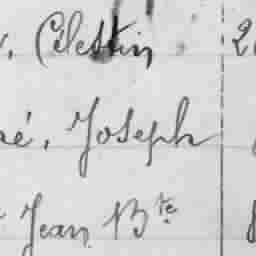 Célestin 2
é, Joseph
Jean Bte